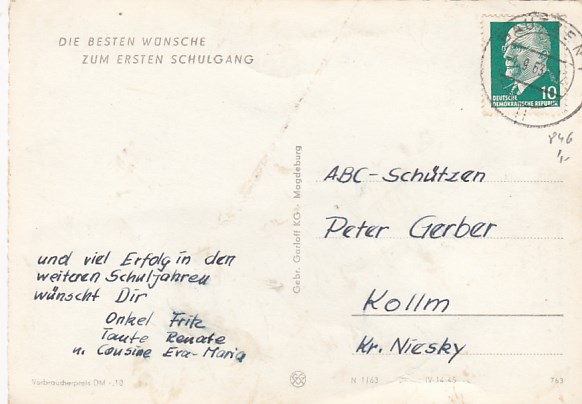 DIE BESTEN WÜNSCHE
ZUM ERSTEN SCHULGANG
10
DEUTSCHE
DEMOKRATISCHE REPUBLIK
9.63
846
1,-
ABC-Schützen
Peter Gerber
Kollm
Kr. Niesky
und viel Erfolg in den
weiteren Schuljahren
wünscht Dir
Onkel Fritz
Tante Renate
u. Cousine Eva-Maria
Gebr. Garloff KG · Magdeburg
Verbraucherpreis DM -,12
N 1163
IV-14-45
763